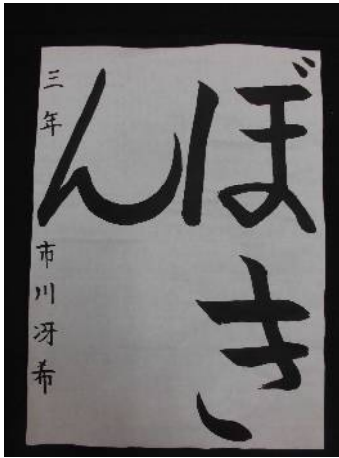 ぼき
ん
三年 市川冴希